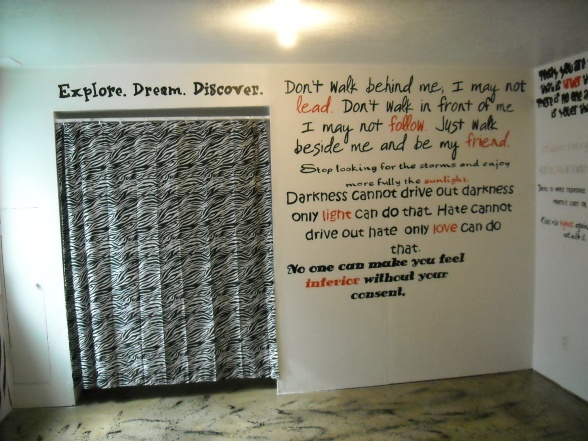 Explore. Dream. Discover.
Don't walk behind me, I may not
lead. Don't walk in front of me
I may not follow. Just walk
beside me and be my friend.
Stop looking for the storms and enjoy
more fully the sunlight.
Darkness cannot drive out darkness
only light can do that. Hate cannot
drive out hate only love can do
that.
No one can make you feel
inferior without your
consent.